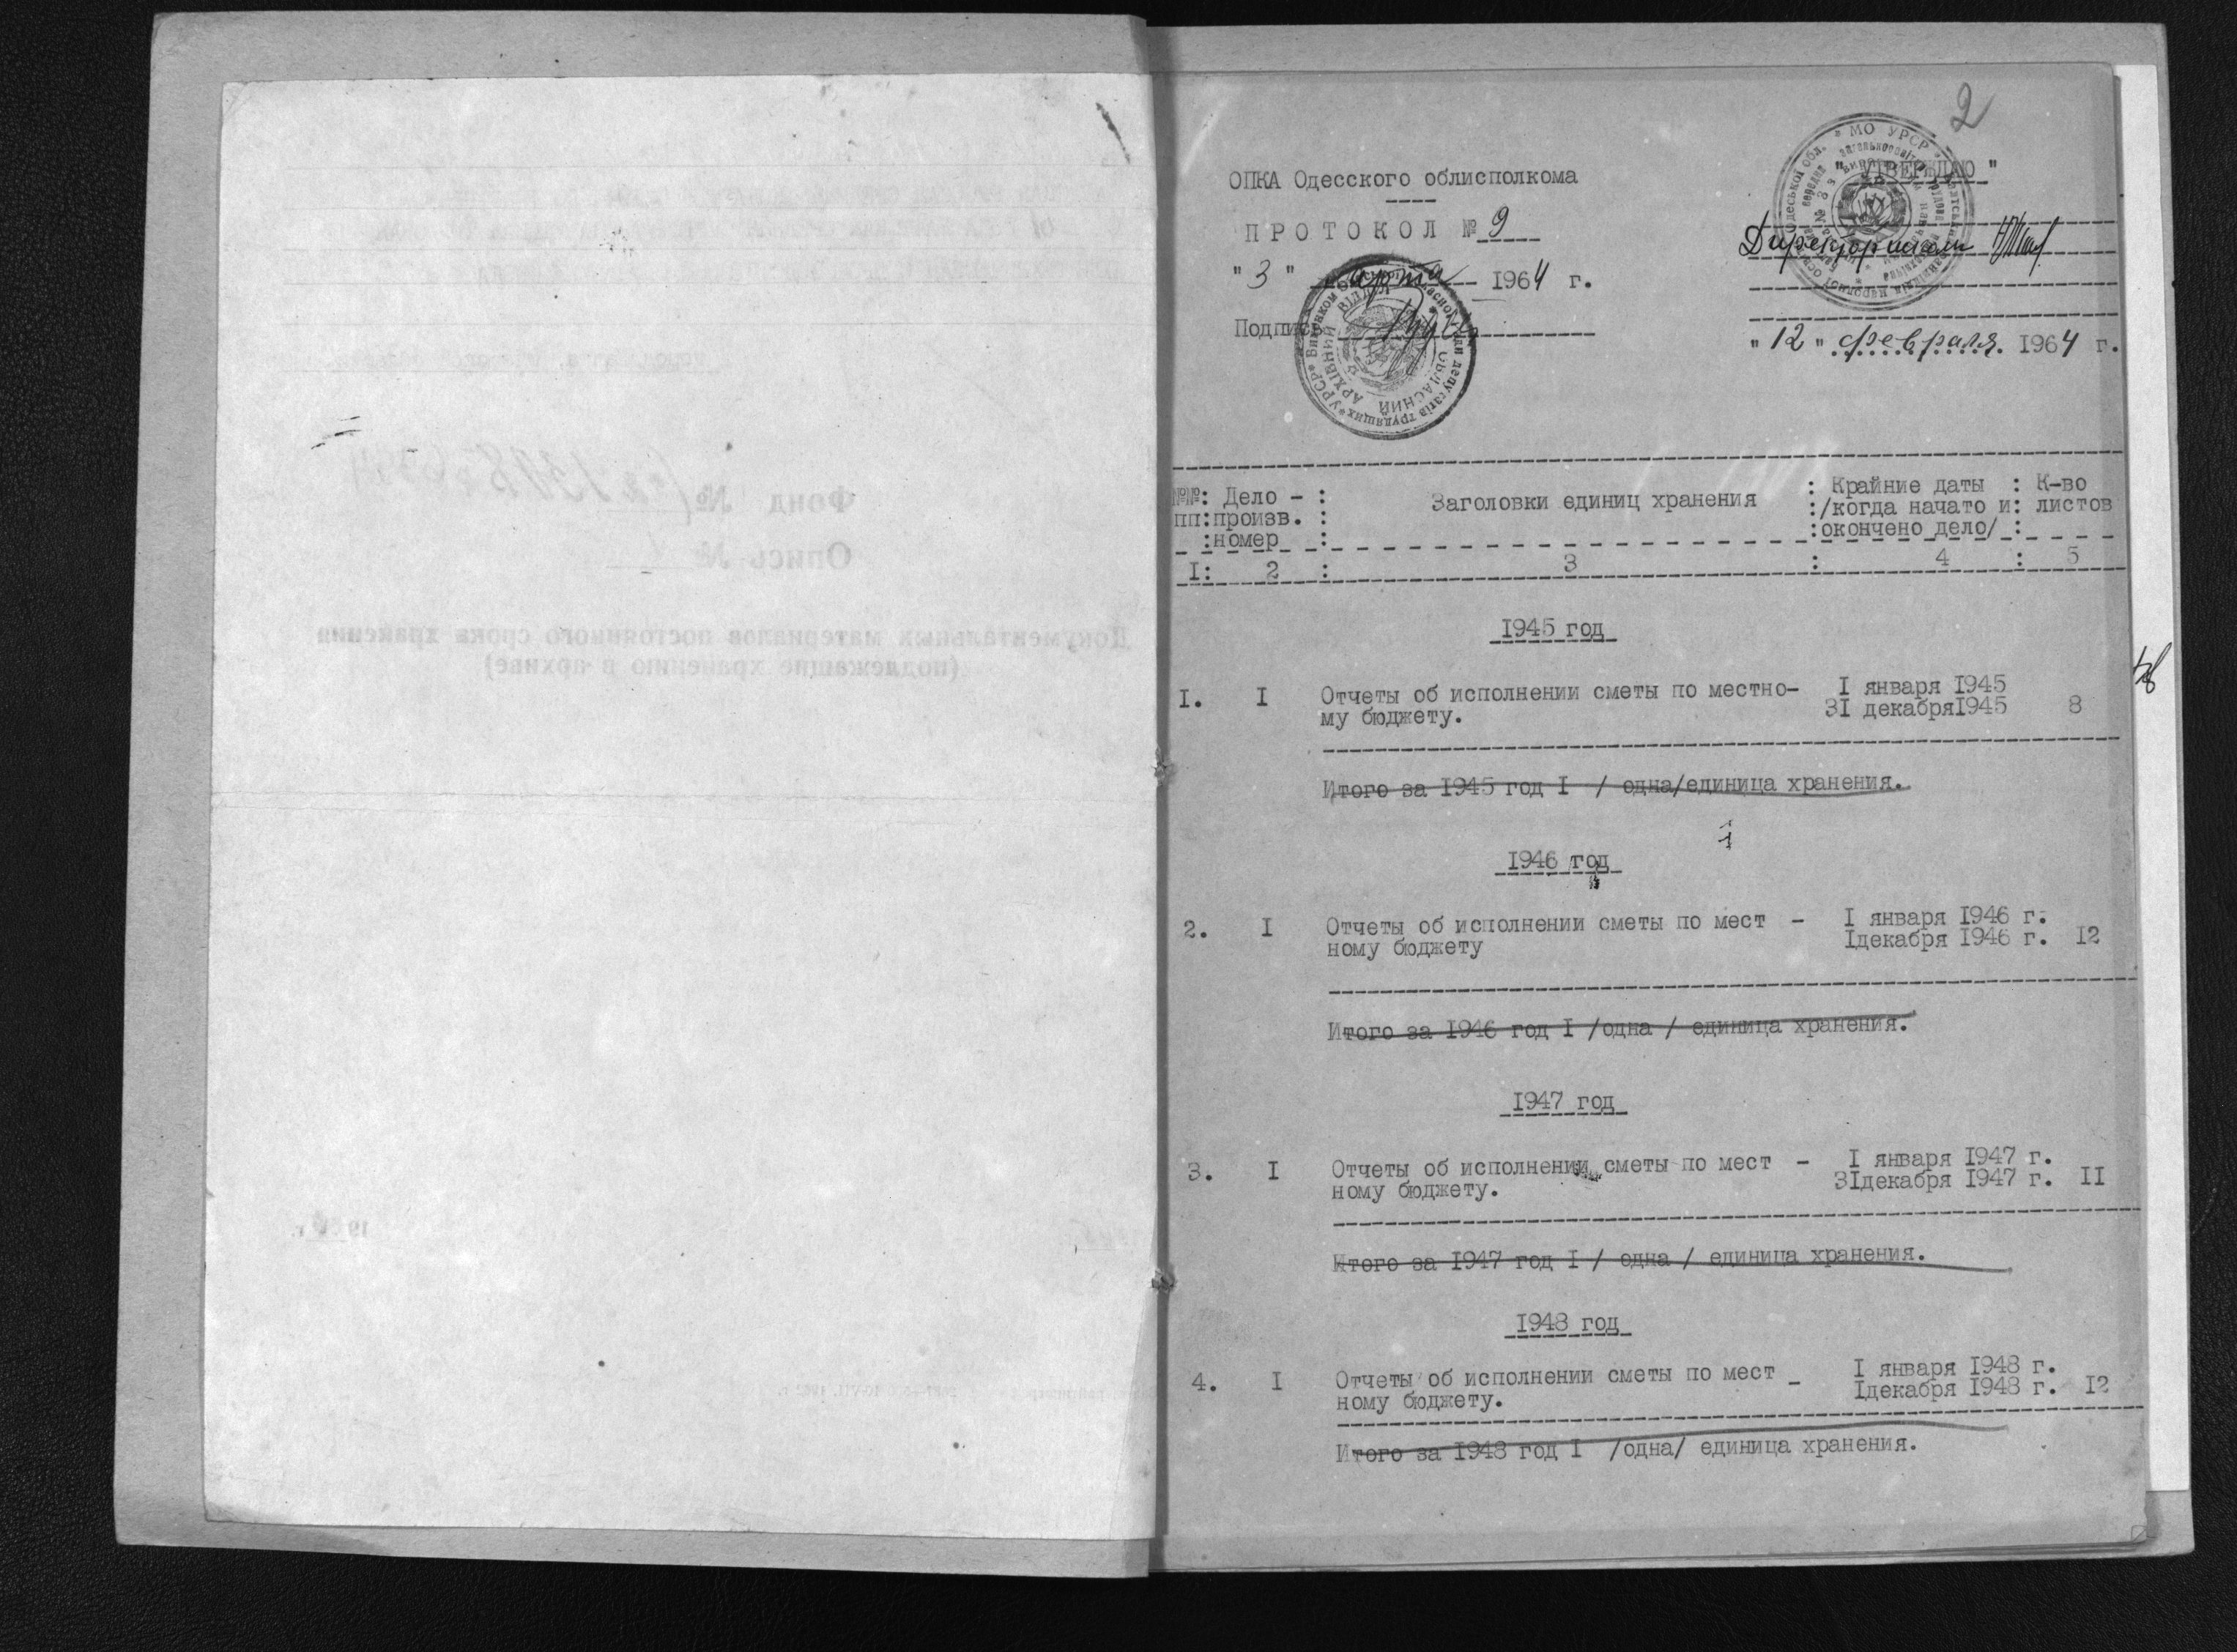 2
ОПКА Одесского облисполкома
ПРОТОКОЛ № 9
"3" марта 1964 г.
Подпись
"УТВЕРЖДАЮ"
Директор школы
"12" февраля 1964 г.
№№: Дело - : Заголовки единиц хранения : Крайние даты : К-во
пп:произв. : :/когда начато и: листов
:номер : :окончено дело/ :
I: 2 : 3 : 4 : 5
1945 год
I. I Отчеты об исполнении сметы по местно- I января 1945
му бюджету. 3I декабря1945 8
Итого за 1945 год I / одна/единица хранения.
1946 год
2. I Отчеты об исполнении сметы по мест - I января 1946 г.
ному бюджету Iдекабря 1946 г. I2
Итого за 1946 год I /одна / единица хранения.
1947 год
3. I Отчеты об исполнении сметы по мест - I января 1947 г.
ному бюджету. 3Iдекабря 1947 г. II
Итого за 1947 год I / одна / единица хранения.
1948 год
4. I Отчеты об исполнении сметы по мест - I января 1948 г.
ному бюджету. Iдекабря 1948 г. I2
Итого за 1948 год I /одна/ единица хранения.
Фонд №
Опись № 1
Документальных материалов постоянного срока хранения
(подлежащие хранению в архиве)